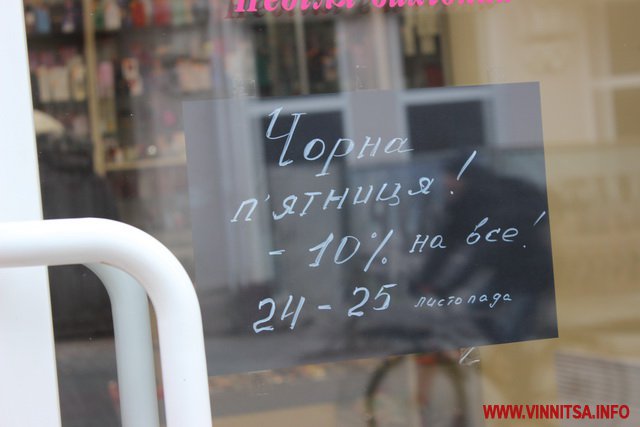 Чорна
п'ятниця!
- 10% на все!
24-25 листопада
WWW.VINNITSA.INFO